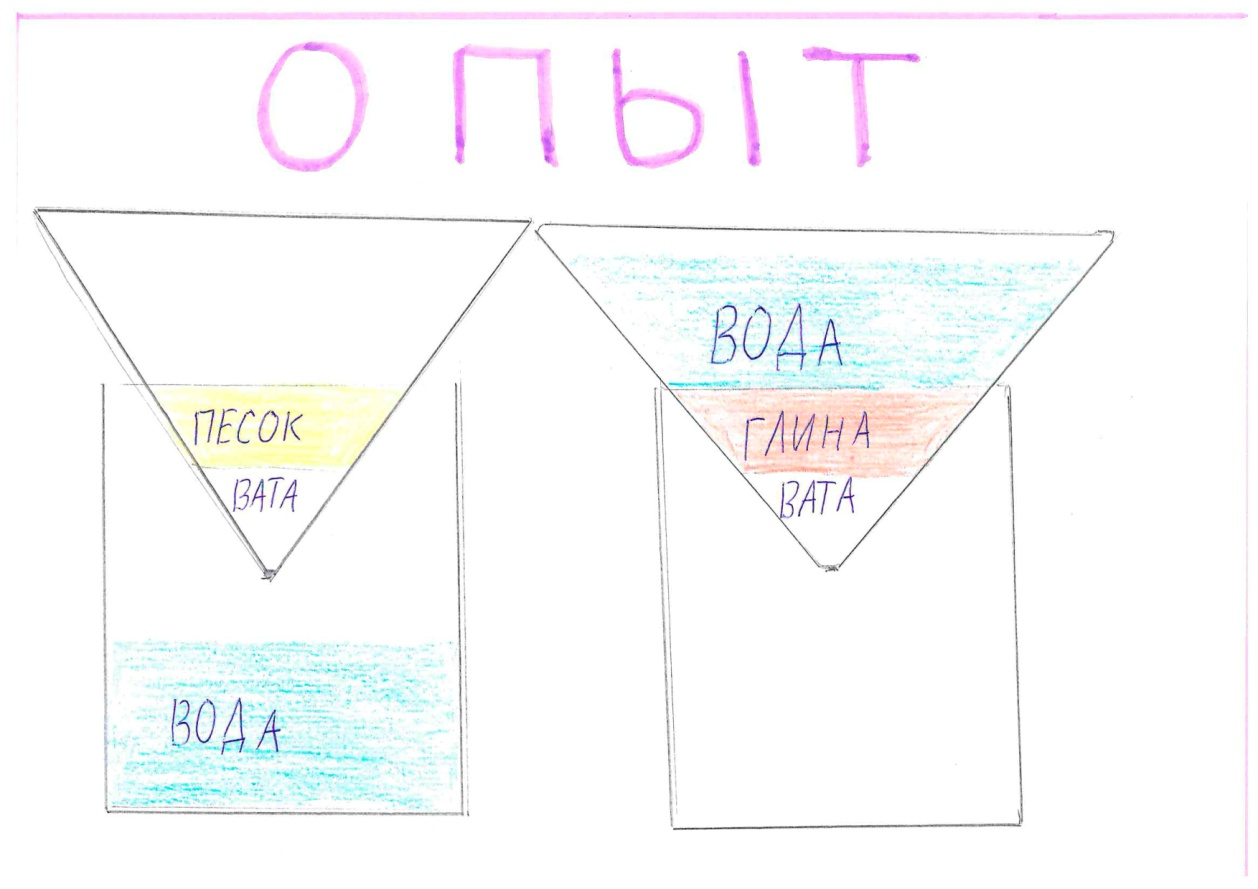 ОПЫТ
ПЕСОК
ВАТА
ВОДА
ВОДА
ГЛИНА
ВАТА